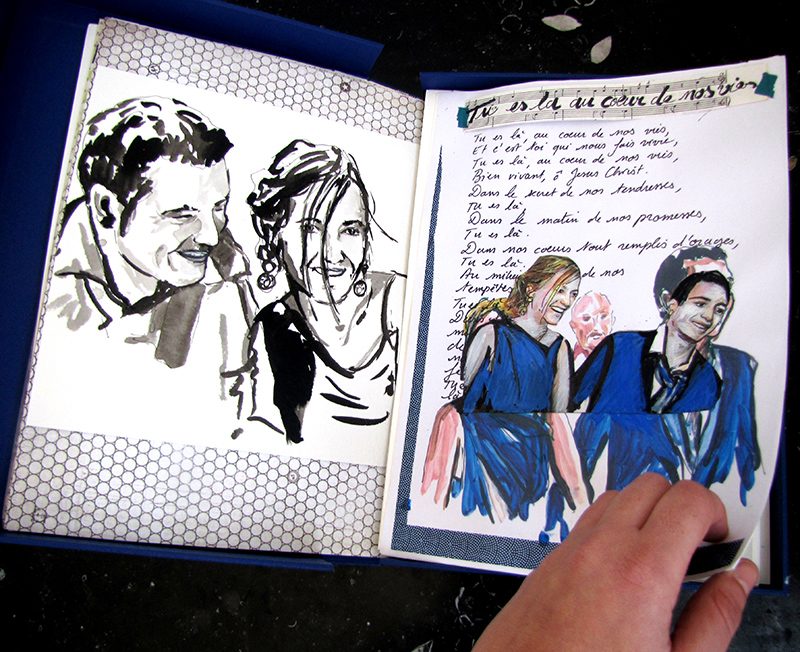 Tu es là au coeur de nos vies
Tu es là au coeur de nos vies,
Et c'est toi qui nous fais vivre,
Tu es là, au coeur de nos vies,
Bien vivant, ô Jesus Christ.
Dans le secret de nos tendresses,
Tu es là
Dans le matin de nos promesses,
Tu es là.
Dans nos coeurs tout remplis d'orages,
Tu es là.
Au milieu de nos
tempêtes
Tu es